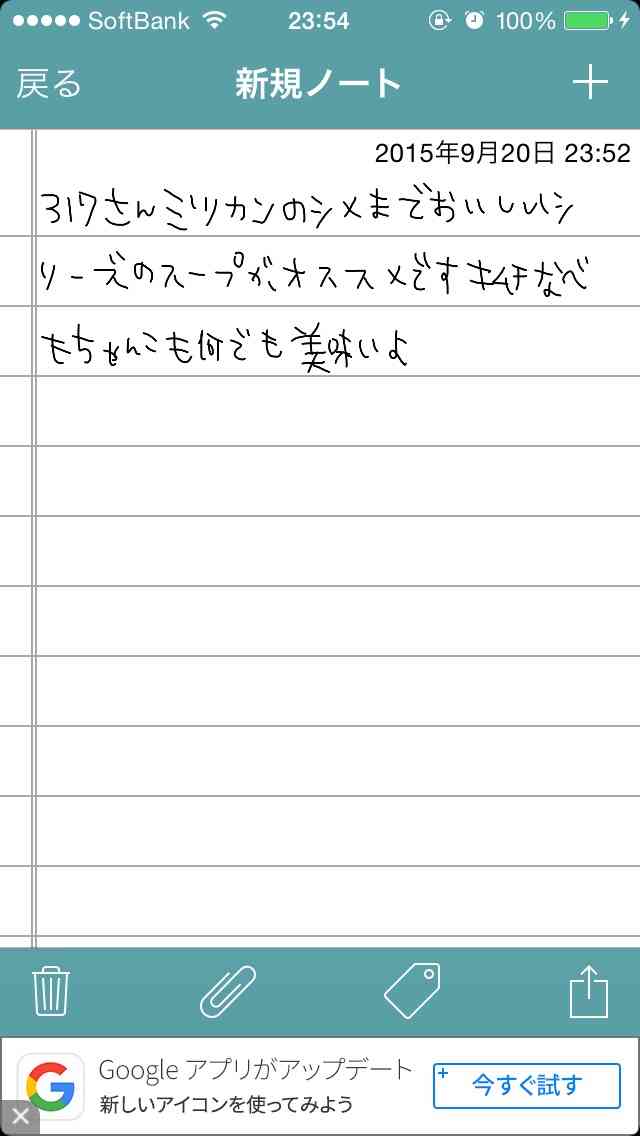 SoftBank 23:54 100%
戻る 新規ノート
2015年9月20日 23:52
317さんミツカンのシメまでおいしいシ
リーズのスープが、オススメです キムチなべ
もちゃんこも何でも美味いよ
Google アプリがアップデート
新しいアイコンを使ってみよう
今すぐ試す